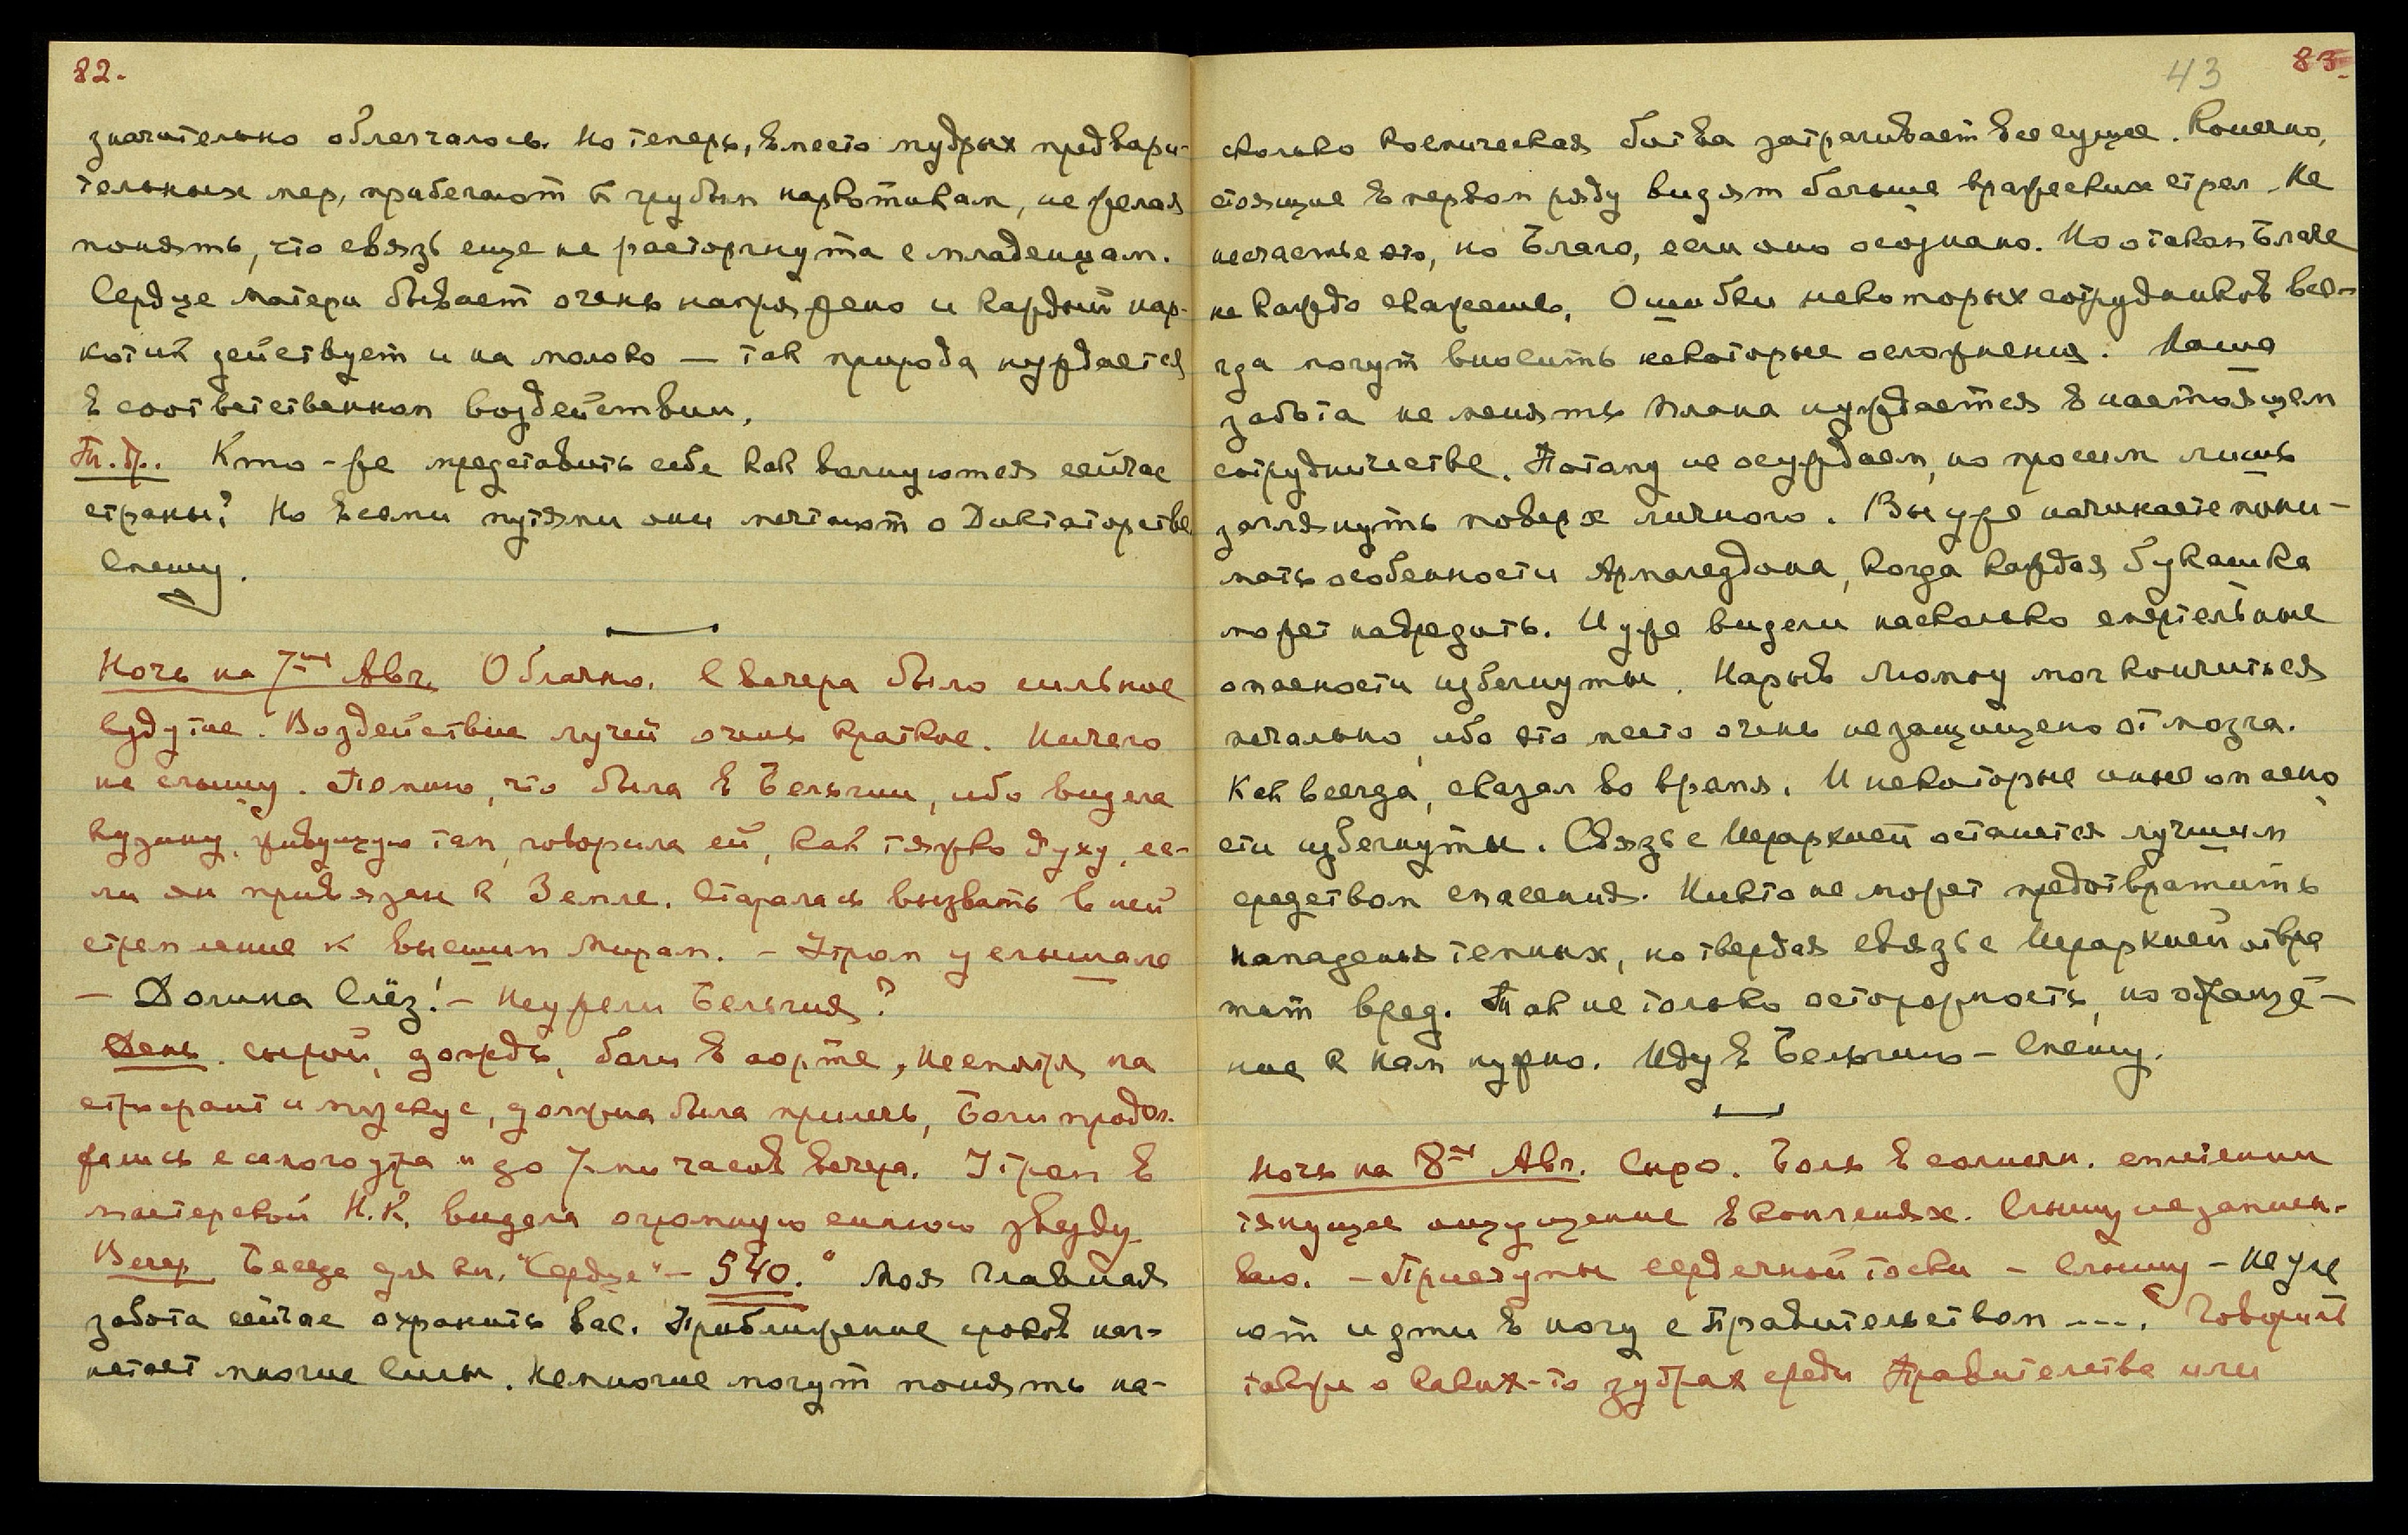 82.
значительно облегчалось. Но теперь, вместо мудрых предвари-
тельных мер, прибегают к грубым наркотикам, не желая
понять, что связь еще не расторгнута с младенцам.
Сердце матери бывает очень напряжено и каждый нар-
котик действует и на молоко — так природа нуждается
в соответственном воздействии.
Кто-же представить себе как волнуются сейчас
страны? Но всеми путями они мечтают о Диктаторстве
Спешу.
Ночь на 7ое Авг. Облачно. С вечера было сильное
вздутие. Воздействие лучей очень краткое. Ничего
не слышу. Помню, что была в Бельгии, ибо видела
кузину, живущую там, говорила ей, как тяжко духу, ес-
ли он привязан к Земле. Старалась вызвать в ней
стремление к высшим Мирам. – Утром услышала
— Долина Слёз! – Неужели Бельгия?
День. сырой, дождь, боли в аорте, несмотря на
строфант и мускус, должна была прилечь, боли продол-
жались с самого утра и до 7-ми часов вечера. Утром в
мастерской Н.К. видела огромную синюю звезду
Вечер Беседа для кн. "Сердце" – 540. Моя главная
забота сейчас охранить вас. Приближение сроков наг-
нетает многие Силы. Немногие могут понять на-
43 83.
сколько космическая битва затрагивает все сущее. Конечно,
стоящие в первом ряду видят больше вражеских стрел. Не
несчастье это, но Благо, если оно осознано. Но о таком Благе
не каждо скажешь. Ошибки некоторых сотрудников все-
гда могут вносить некоторые осложнения. Наша
забота не менять Плана нуждается в настоящем
сотрудничестве. Потому не осуждаем, но просим лишь
заглянуть поверх личного. Вы уже начинаете пони-
мать особенности Армагеддона, когда каждая букашка
может навредить. И уже видели насколько смертельные
опасности избегнуты. Нарыв Люмоу мог кончиться
печально, ибо это место очень незащищено от мозга.
Как всегда, сказал во время. И некоторые иные опасно
сти избегнуты. Связь с Иерархией останется лучшим
средством спасения. Никто не может предотвратить
нападения темных, но твердая связь с Иерархией отвра
тит вред. Так не только осторожность, но обращé-
ние к Нам нужно. Иду в Бельгию – Спешу.
Ночь на 8ое Авг. Сыро. Боль в солнечн. сплетении
тянущее ощущение в конечнях. Слышу не записы-
ваю. – Приступы сердечной тоски – Слышу – Не уме
ют идти в ногу с Правительством ---. Говорить
также о каких-то зубрах среди Правительства или